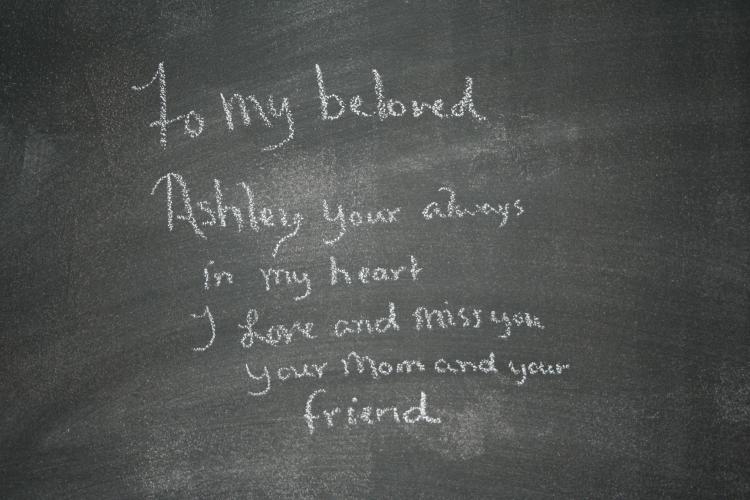 To my beloved
Ashley your always
in my heart
I Love and miss you
your Mom and your
friend